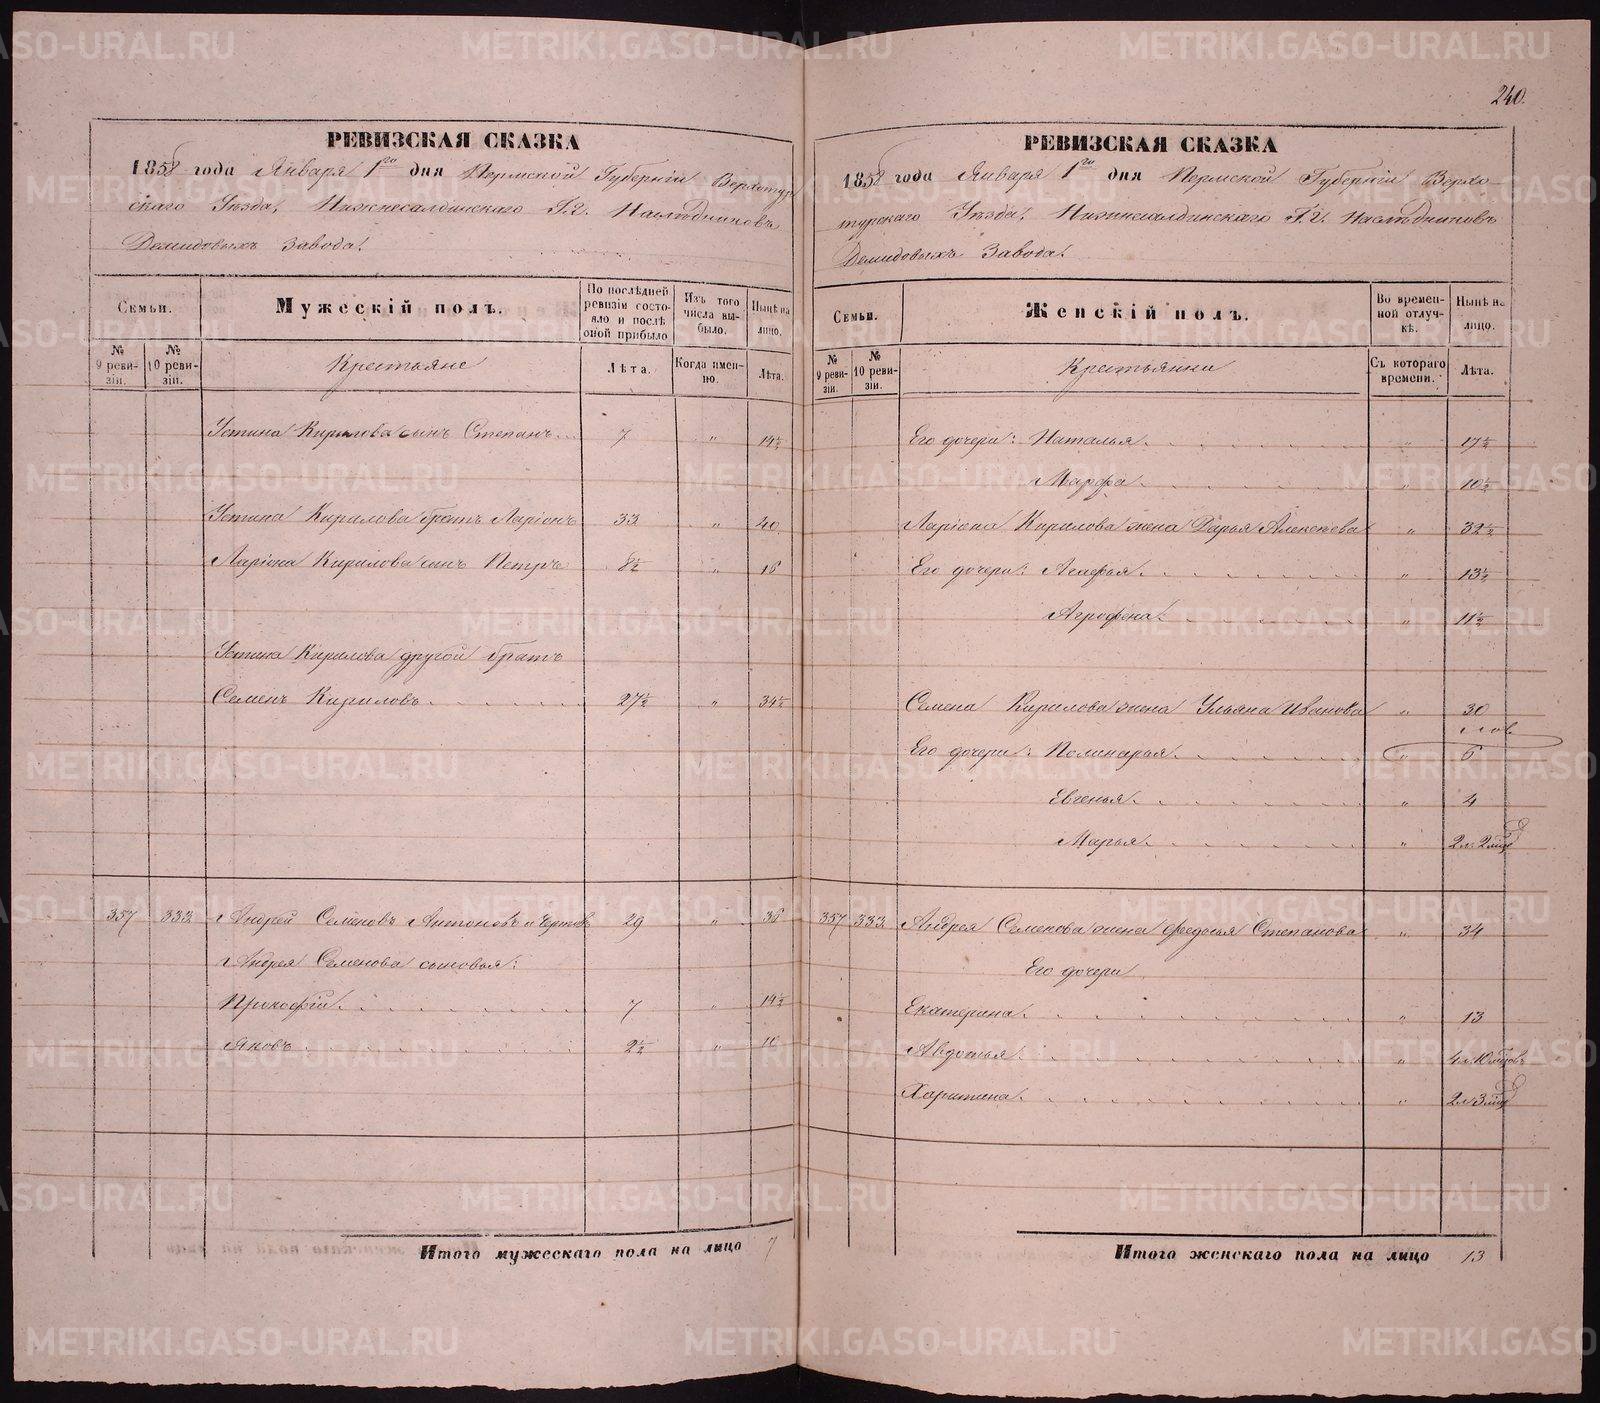 240.
РЕВИЗСКАЯ СКАЗКА
1858 года Января 1го дня Пермской Губерніи Верхотур
скаго Уѣзда, Нижнесалдинскаго Г.г. Наслѣдниковъ
Демидовыхъ Завода.
Семьи.
Мужескій полъ.
По послѣдней ревизіи состояло и послѣ оной прибыло
Изъ того числа выбыло.
Нынѣ на лицо.
№ 9 ревизіи.
№ 10 ревизіи.
Крестьяне
Лѣта.
Когда именно.
Лѣта.
Устина Кирилова сынъ Степанъ 7 " 14½
Устина Кирилова братъ Ларіонъ 33 " 40
Ларіона Кирилова сынъ Петръ 8½ " 16
Устина Кирилова другой братъ
Семенъ Кириловъ 27½ " 34½
357 333 Андрей Семеновъ Антоновъ и 29 " 36
Андрея Семенова сыновья:
Прокофій 7 " 14½
Яковъ 2½ " 10
Итого мужескаго пола на лицо 7
РЕВИЗСКАЯ СКАЗКА
1858 года Января 1го дня Пермской Губерніи Верхо-
турскаго Уѣзда, Нижнесалдинскаго Г.г. Наслѣдниковъ
Демидовыхъ Завода.
Семьи.
Женскій полъ.
Во временной отлучкѣ.
Нынѣ на лицо.
№ 9 ревизіи.
№ 10 ревизіи.
Крестьянки
Съ котораго времени.
Лѣта.
Его дочери: Наталья " 17½
Марфа " 10½
Ларіона Кирилова жена Дарья Алексѣева " 32½
Его дочери: Агафья " 13½
Агрофена " 11½
Семена Кирилова жена Ульяна Иванова " 30
Его дочери: Полинарья " 6
Евгенья " 4
Марья " 2 л. 2 мѣс
357 333 Андрея Семенова жена Федосья Степанова " 34
Его дочери
Екатерина " 13
Авдотья " 4 л. 10 мѣсцовъ
Харитина " 2 л. 3 мѣс
Итого женскаго пола на лицо 13
METRIKI.GASO-URAL.RU